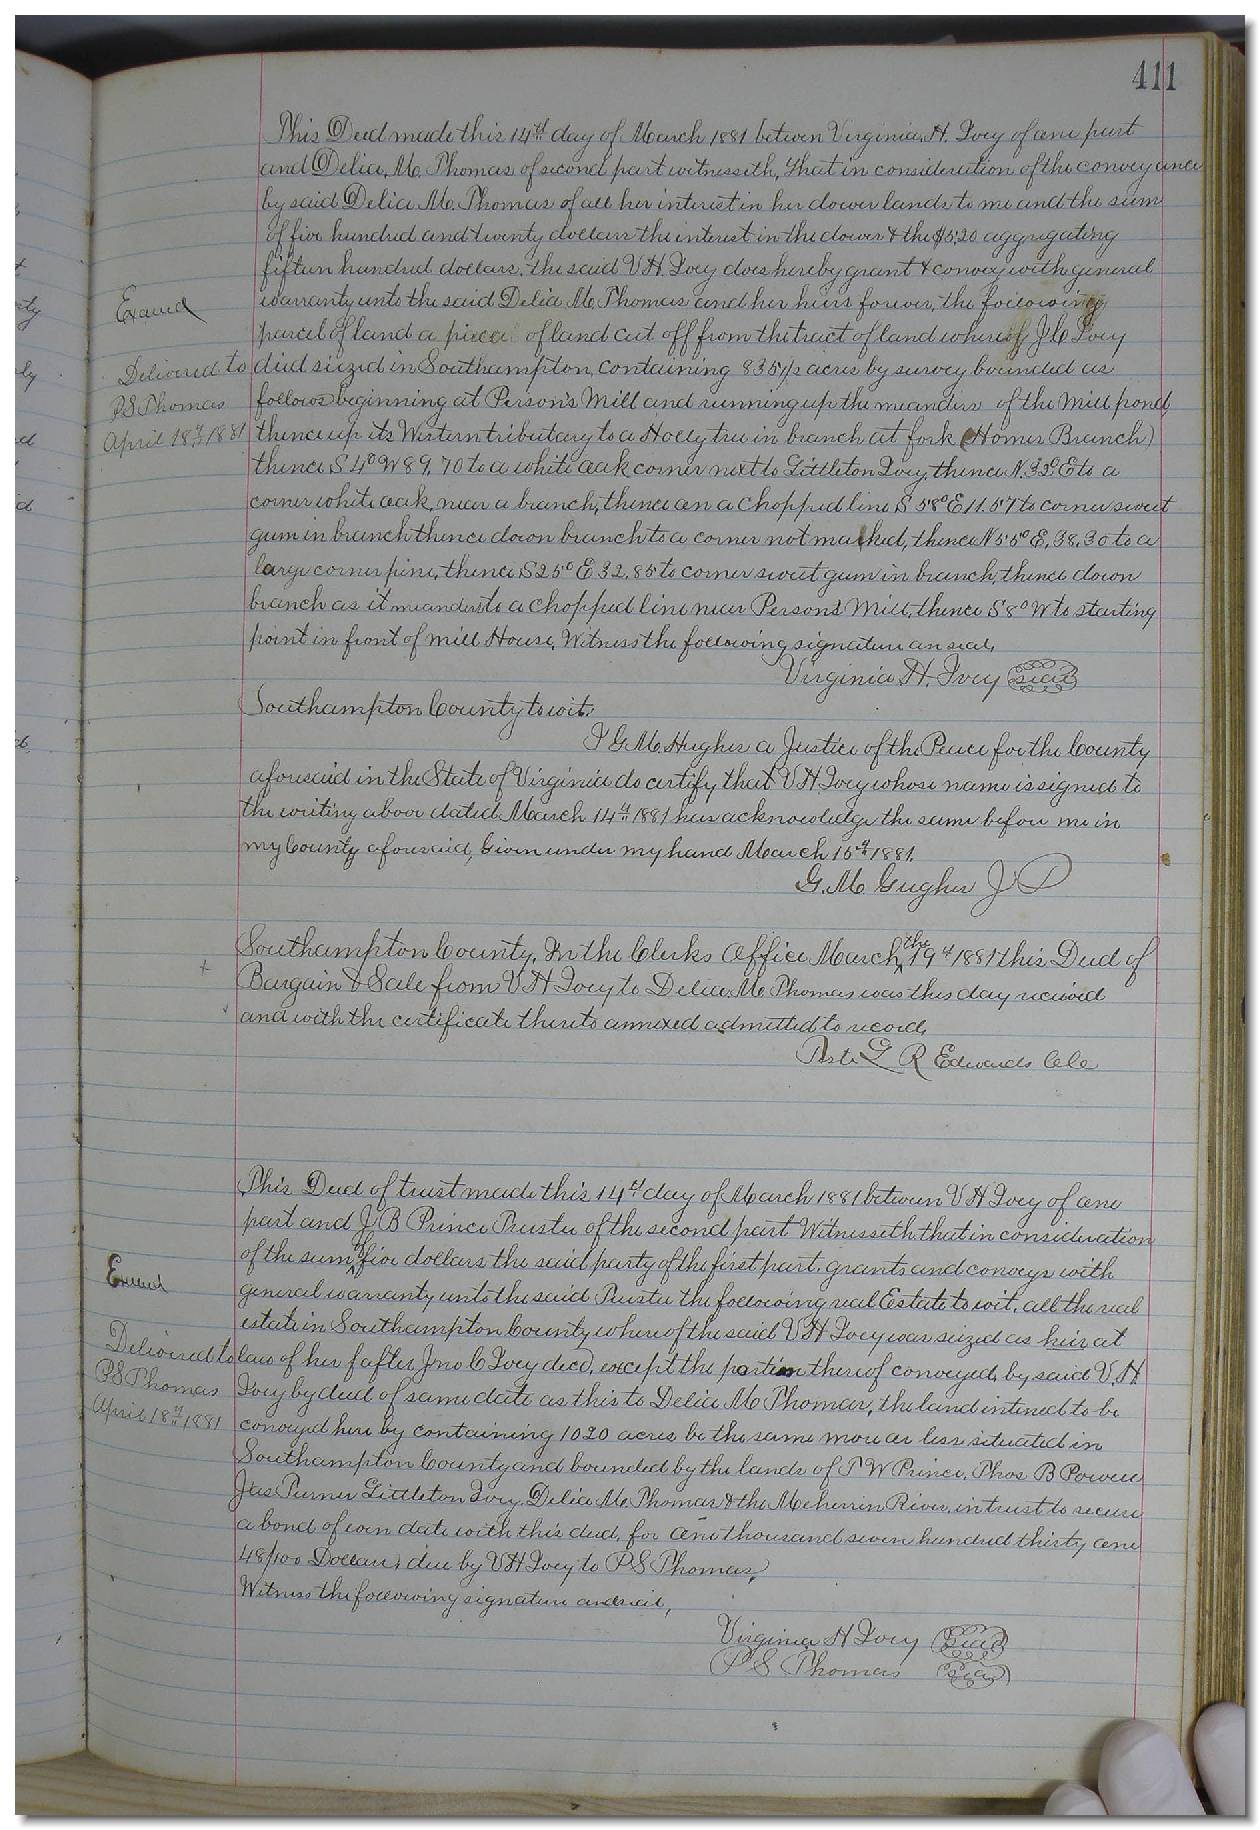 411
This Deed made this 14th day of March 1881 between Virginia, H. Ivey of one part
and Delia, M. Thomas of second part witnesseth, that in consideration of the conveyance
by said Delia M. Thomas of all her interest in her dower lands to me and the sum
of five hundred and twenty dollars the interest in the dower & the $520 aggregating
fifteen hundred dollars, the said V.H. Ivey does hereby grant & convey with general
warranty unto the said Delia M. Thomas and her heirs forever, the following
parcel of land a piece of land cut off from the tract of land whereof J.C. Ivey
died seized in Southampton, containing 835 1/2 acres by survey bounded as
follows beginning at Person's Mill and running up the meanders of the Mill pond
thence up its Western tributary to a Holly tree in branch at fork (Homes Branch)
thence S 4° W 89,70 to a white oak corner next to Littleton Ivey, thence N. 32° E to a
corner white oak, near a branch, thence on a chopped line S 58° E 11.57 to corner sweet
gum in branch thence down branch to a corner not marked, thence N 55° E, 38.30 to a
large corner pine, thence S 25° E 32.85 to corner sweet gum in branch, thence down
branch as it meanders to a chopped line near Person's Mill, thence S 8° W to starting
point in front of mill House, Witness the following signature an seal,
Virginia H. Ivey seal
Examd
Delivered to
P S Thomas
April 18th 1881
Southampton County to wit:
I G. M. Hughes a Justice of the Peace for the County
aforesaid in the State of Virginia do certify that V H Ivey whose name is signed to
the writing above dated March 14th 1881 has acknowledge the same before me in
my County aforesaid, Given under my hand March 15th 1881.
G. M. Gughes J P
Southampton County, In the Clerks Office March the 19th 1881 this Deed of
Bargain & Sale from V H Ivey to Delia M Thomas was this day received
and with the certificate thereto annexed admitted to record,
Teste L R Edwards Clc
This Deed of trust made this 14th day of March 1881 between V H Ivey of one
part and J B Prince Trustee of the second part Witnesseth that in consideration
of the sum of five dollars the said party of the first part, grants and conveys with
general warranty unto the said Trustee the following real Estate to wit, all the real
estate in Southampton County whereof the said V H Ivey was seized as heir at
law of her fafter Jno C Ivey decd, except the portion thereof conveyed, by said V. H.
Ivey by deed of same date as this to Delia M Thomas, the land intened to be
conveyed here by containing 1020 acres be the same more or less situated in
Southampton County and bounded by the lands of T W Prince, Thos B Powell
Jas Turner Littleton Ivey Delia M. Thomas & the Meherrin River, in trust to secure
a bond of even date with this deed, for one thousand seven hundred thirty one
48/100 Dollars, due by V H Ivey to P S Thomas,
Witness the following signature and seal,
Virginia H Ivey Seal
P S Thomas Seal
Examd
Delivered to
P S Thomas
April 18th 1881